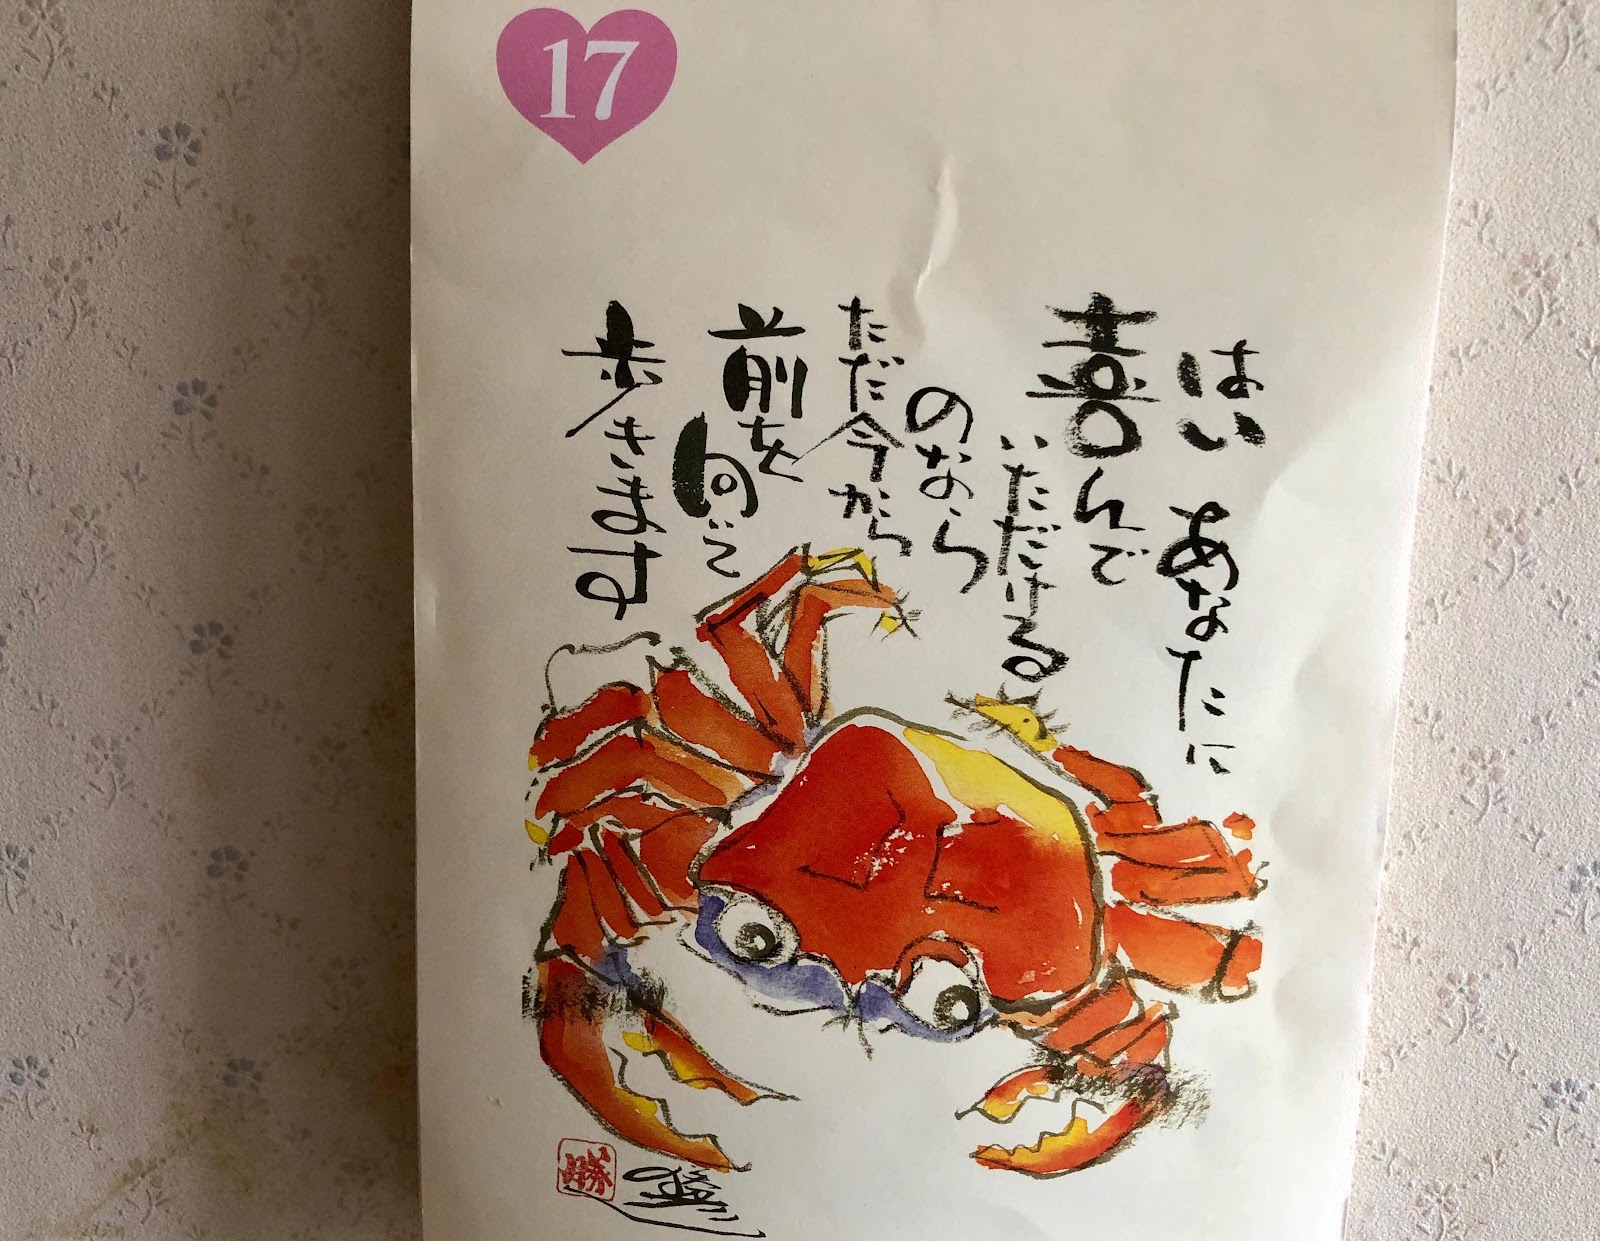 17
はい あなたに
喜んで
いただける
のなら
ただ今から
前を
向いて
歩きます